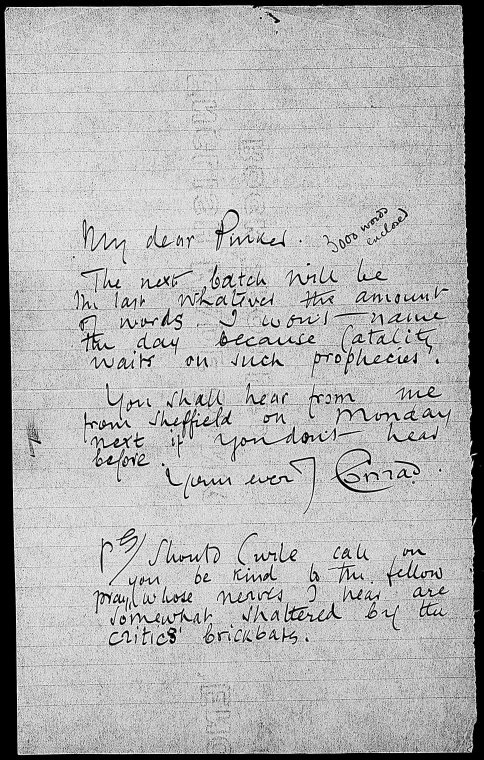 My dear Pinker.
3000 words
enclosed
The next batch will be
the last whatever the amount
of words. I won't name
the day because fatality
waits on such prophecies.
You shall hear from me
from Sheffield on Monday
next if you don't hear
before.
Yours ever J Conrad.
PS/ Should call on
you be kind to the fellow
pray, whose nerves I hear are
somewhat shattered by the
critics' brickbats.